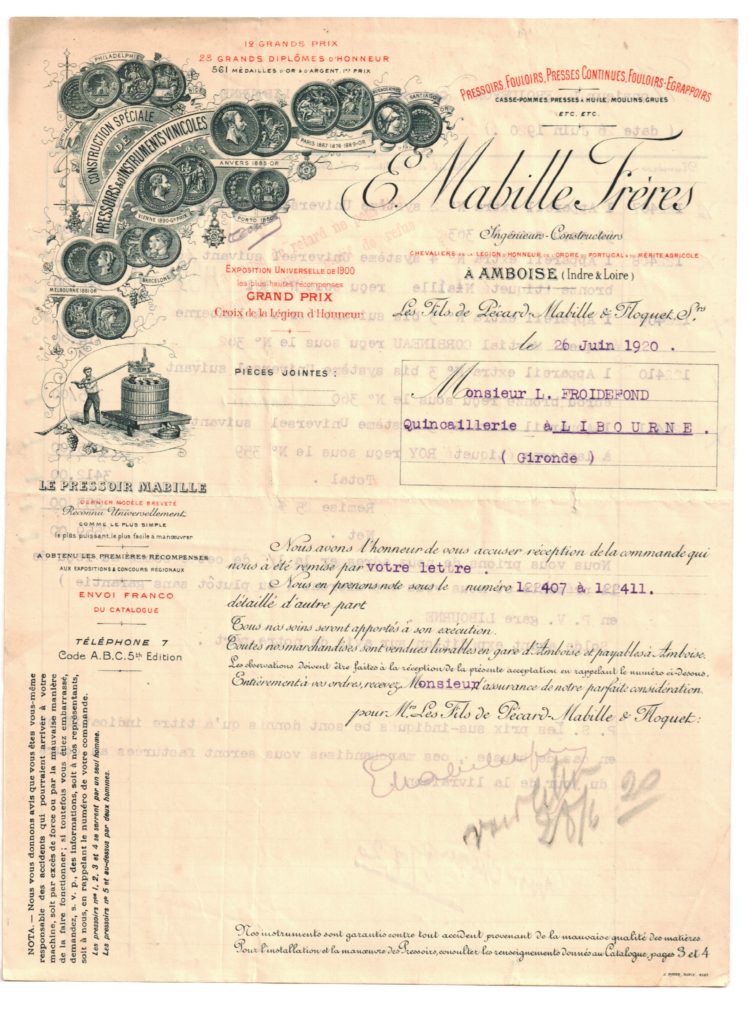 12 GRANDS PRIX
28 GRANDS DIPLÔMES D'HONNEUR
561 MÉDAILLES D'OR & D'ARGENT, 1ers PRIX
PHILADELPHIE
CONSTRUCTION SPÉCIALE
DE
PRESSOIRS & D'INSTRUMENTS VINICOLES
PARIS 1867 1878 1889-OR
SANTIAGO
ANVERS 1885 OR
VIENNE 1890-Gd PRIX
PORTO
BARCELONE
MELBOURNE 1881 OR
PRESSOIRS, FOULOIRS, PRESSES CONTINUES, FOULOIRS-EGRAPPOIRS
CASSE-POMMES, PRESSES A HUILE, MOULINS, GRUES
ETC. ETC.
E. Mabille Frères
Ingénieurs-Constructeurs
CHEVALIERS DE LA LÉGION D'HONNEUR DE L'ORDRE DU PORTUGAL & DU MÉRITE AGRICOLE
À AMBOISE (Indre & Loire)
Les Fils de Pécard-Mabille & Floquet, Srs
EXPOSITION UNIVERSELLE DE 1900
les plus hautes récompenses
GRAND PRIX
Croix de la Légion d'Honneur
le 26 Juin 1920 .
PIÈCES JOINTES :
Monsieur L. FROIDEFOND
Quincaillerie à LIBOURNE .
( Gironde )
LE PRESSOIR MABILLE
DERNIER MODÈLE BREVETÉ
Reconnu Universellement
COMME LE PLUS SIMPLE
le plus puissant, le plus facile à manœuvrer
A OBTENU LES PREMIÈRES RÉCOMPENSES
AUX EXPOSITIONS & CONCOURS RÉGIONAUX
ENVOI FRANCO
DU CATALOGUE
TÉLÉPHONE 7
Code A.B.C. 5th Edition
Nous avons l'honneur de vous accuser réception de la commande qui
nous a été remise par votre lettre .
Nous en prenons note sous le numéro 122407 à 122411.
détaillé d'autre part
Tous nos soins seront apportés à son exécution.
Toutes nos marchandises sont vendues livrables en gare d'Amboise et payables à Amboise.
Les observations doivent être faites à la réception de la présente acceptation en rappelant le numéro ci-dessus.
Entièrement à vos ordres, recevez, Monsieur l'assurance de notre parfaite considération.
pour Mrs Les Fils de Pécard-Mabille & Floquet :
28/6
20
NOTA. — Nous vous donnons avis que vous êtes vous-même
responsable des accidents qui pourraient arriver à votre
machine, soit par excès de force ou par la mauvaise manière
de la faire fonctionner ; si toutefois vous étiez embarrassé,
demandez, s. v. p., des informations, soit à nos représentants,
soit à nous, en rappelant le numéro de votre commande.
Les pressoirs nos 1, 2, 3 et 4 se serrent par un seul homme.
Les pressoirs no 5 et au-dessus par deux hommes.
Nos instruments sont garantis contre tout accident provenant de la mauvaise qualité des matières.
Pour l'installation et la manœuvre des Pressoirs, consulter les renseignements donnés au Catalogue, pages 3 et 4